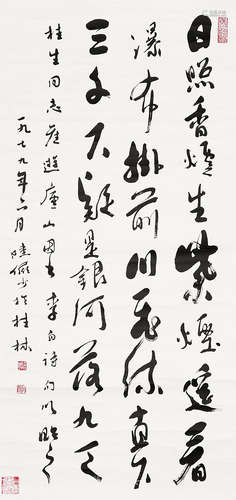 日照香爐生紫煙遥看
瀑布掛前川飛流直下
三千尺疑是銀河落九天
桂生同志遊廬山因書李白詩句以貽之
一九七九年二月陸儼少於桂林